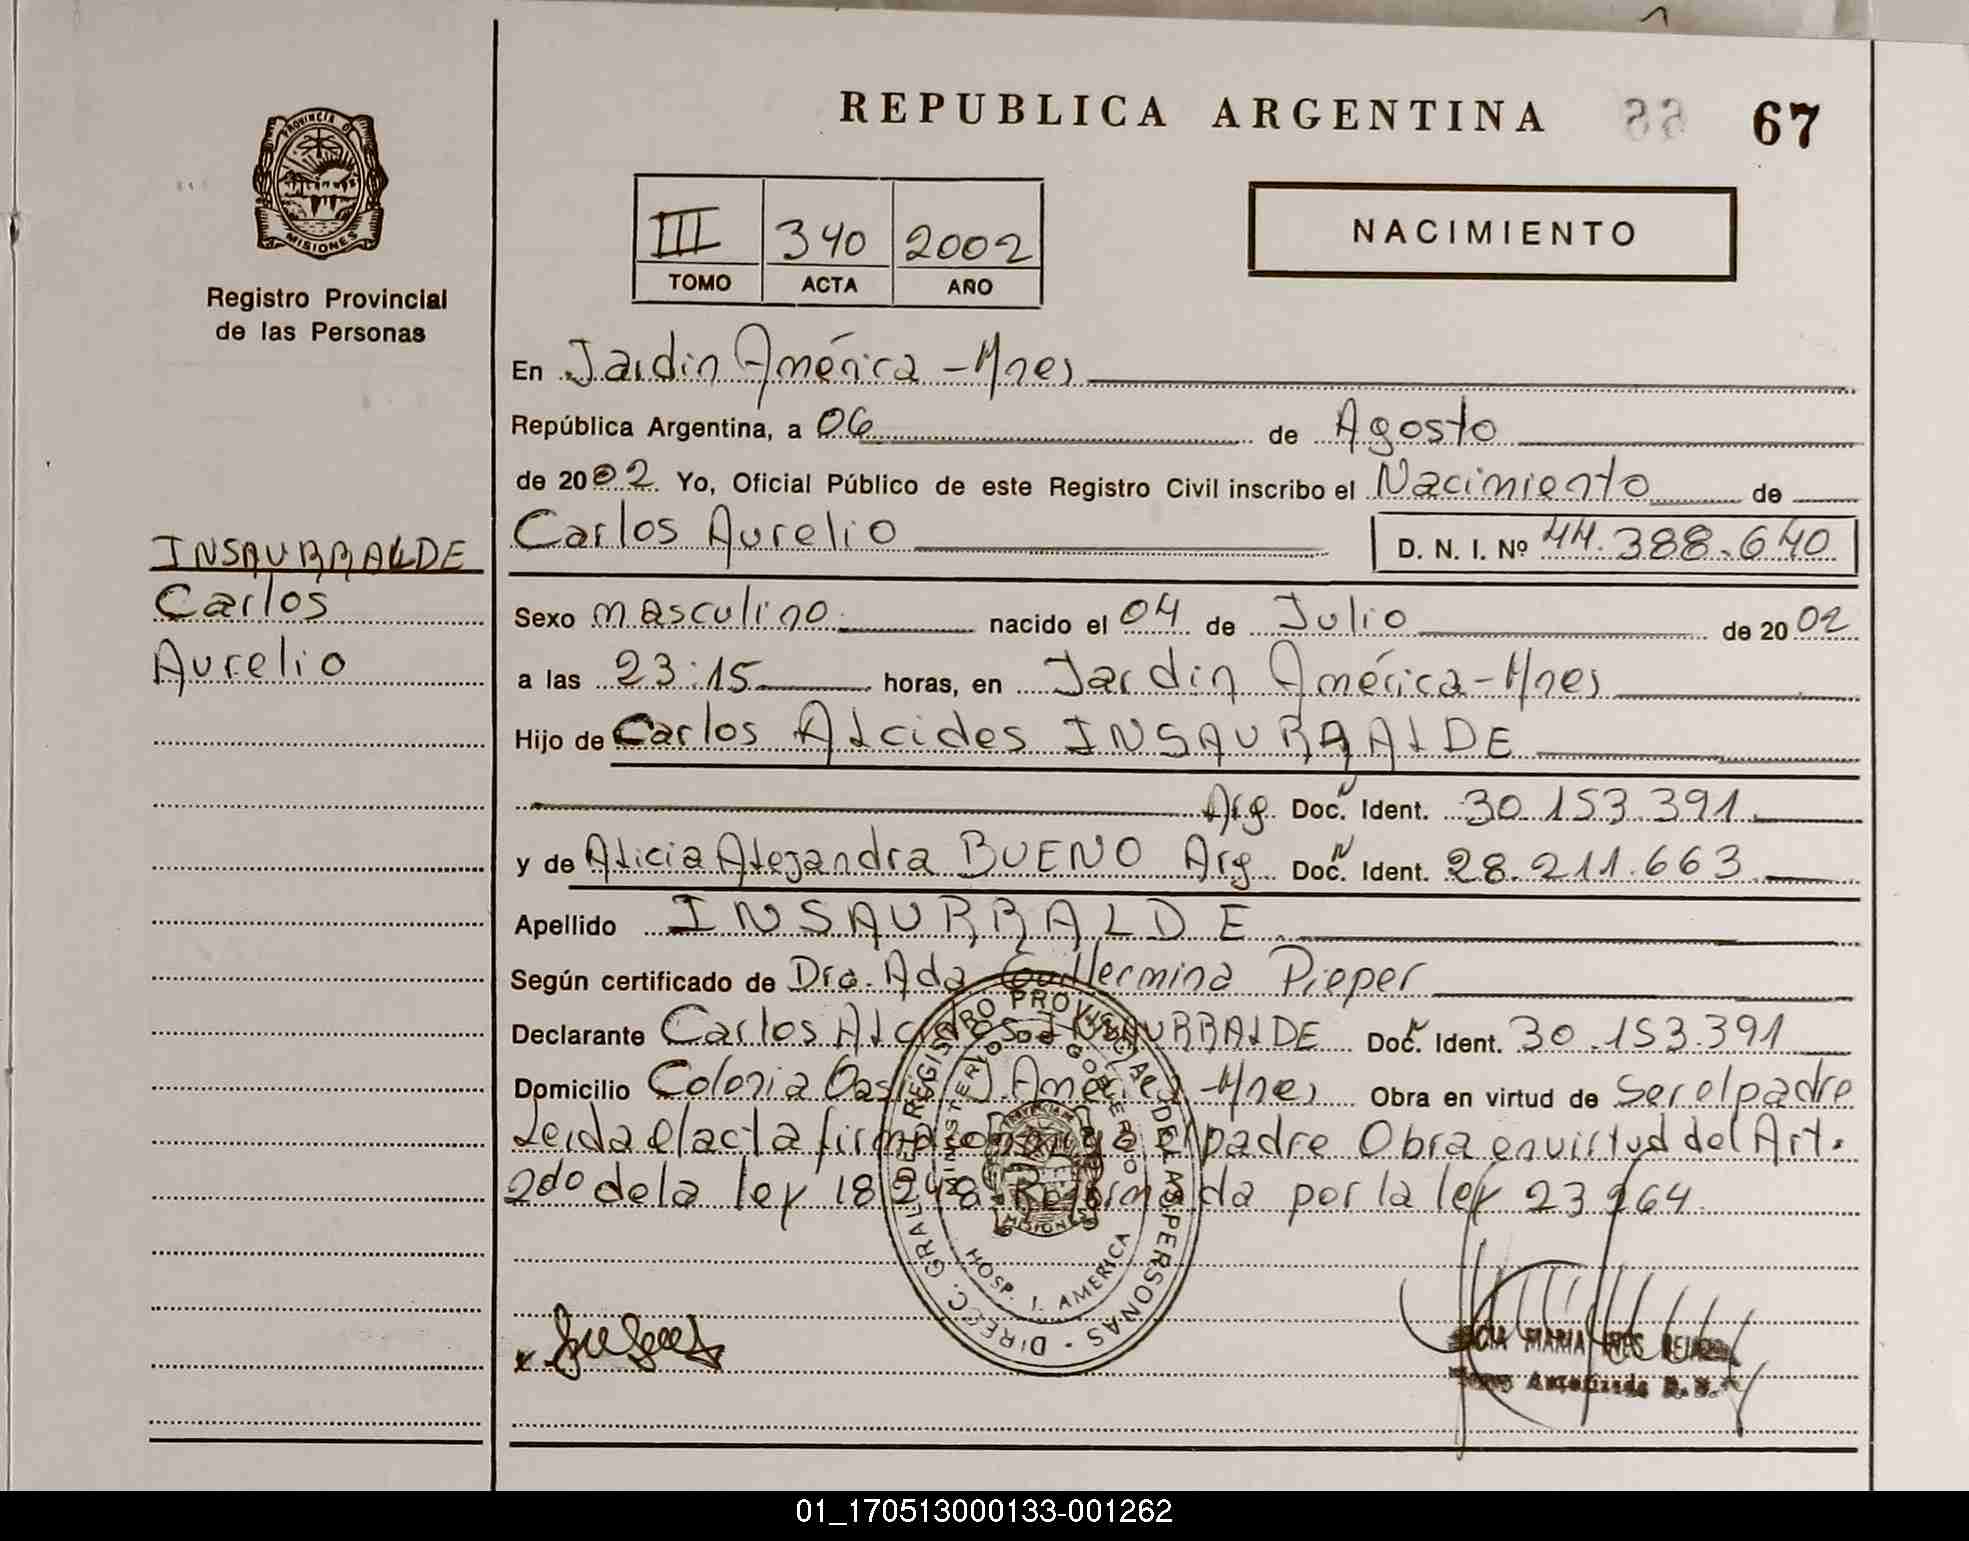 REPUBLICA ARGENTINA 67
PROVINCIA D
MISIONES
Registro Provincial
de las Personas
III 340 2002
TOMO ACTA AÑO
NACIMIENTO
En Jardin América - Mnes
República Argentina, a 06 de Agosto
de 2002 Yo, Oficial Público de este Registro Civil inscribo el Nacimiento de
Carlos Aurelio D. N. I. Nº 44.388.640
INSAURRALDE
Carlos
Aurelio
Sexo masculino nacido el 04 de Julio de 2002
a las 23:15 horas, en Jardin América - Mnes
Hijo de Carlos Alcides INSAURRALDE
Arg. Doc. N Ident. 30.153.391
y de Alicia Alejandra BUENO Arg. Doc. N Ident. 28.211.663
Apellido INSAURRALDE
Según certificado de Dra. Ada Guillermina Pieper
Declarante Carlos Alcides INSAURRALDE Doc. N Ident. 30.153.391
Domicilio Colonia Oasis J. América - Mnes Obra en virtud de Ser el padre
Leida el acta firma conmigo el padre Obra en virtud del Art.
2do de la ley 18248 Reformada por la ley 23264
DIRECC. GRAL. DE REGISTRO PROVINCIAL DE LAS PERSONAS
MINISTERIO DE GOBIERNO
MISIONES
HOSP. J. AMERICA
MARIA INES
01_170513000133-001262